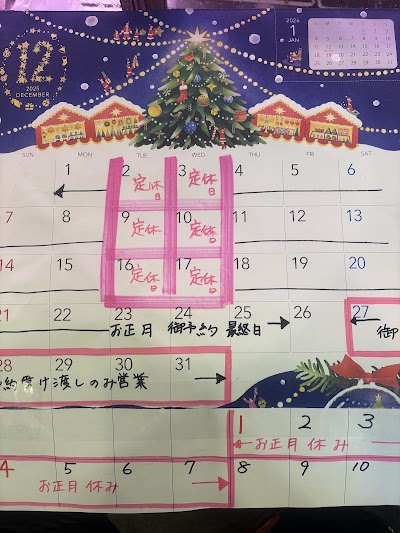 12
2025
DECEMBER
2026
1
JAN
SUN MON TUE WED THU FRI SAT
1 2 定休日 3 定休日 4 5 6
7 8 9 定休 10 定休日 11 12 13
14 15 16 定休日 17 定休日 18 19 20
21 22 23 24 25 26 27
お正月 御予約 最終日 御
28 29 30 31
約受け渡しのみ営業
1 2 3
お正月休み
4 5 6 7 8 9 10
お正月休み